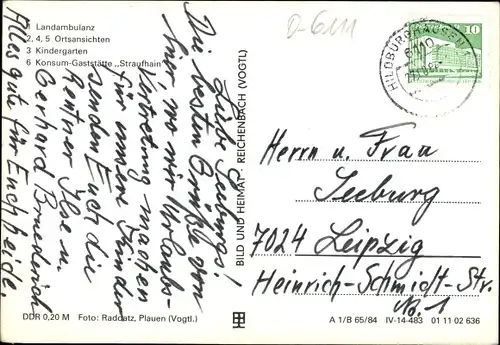 1 Landambulanz
2, 4, 5 Ortsansichten
3 Kindergarten
6 Konsum-Gaststätte „Straufhain"
Liebe Seeburgs!
Die besten Grüße von
hier, wo wir Urlaubs-
vertretung machen
für unsere Kinder
senden Euch die
Rentner Ilse u.
Eberhard
Alles gute für Euch beide.
DDR 0,20 M Foto: Raddatz, Plauen (Vogtl.)
BILD UND HEIMAT · REICHENBACH (VOGTL)
D-6111
HILDBURGHAUSEN
6110
10
Herrn u. Frau
Seeburg
7024 Leipzig
Heinrich-Schmidt-Str.
No. 1
A 1/B 65/84 IV-14-483 01 11 02 636